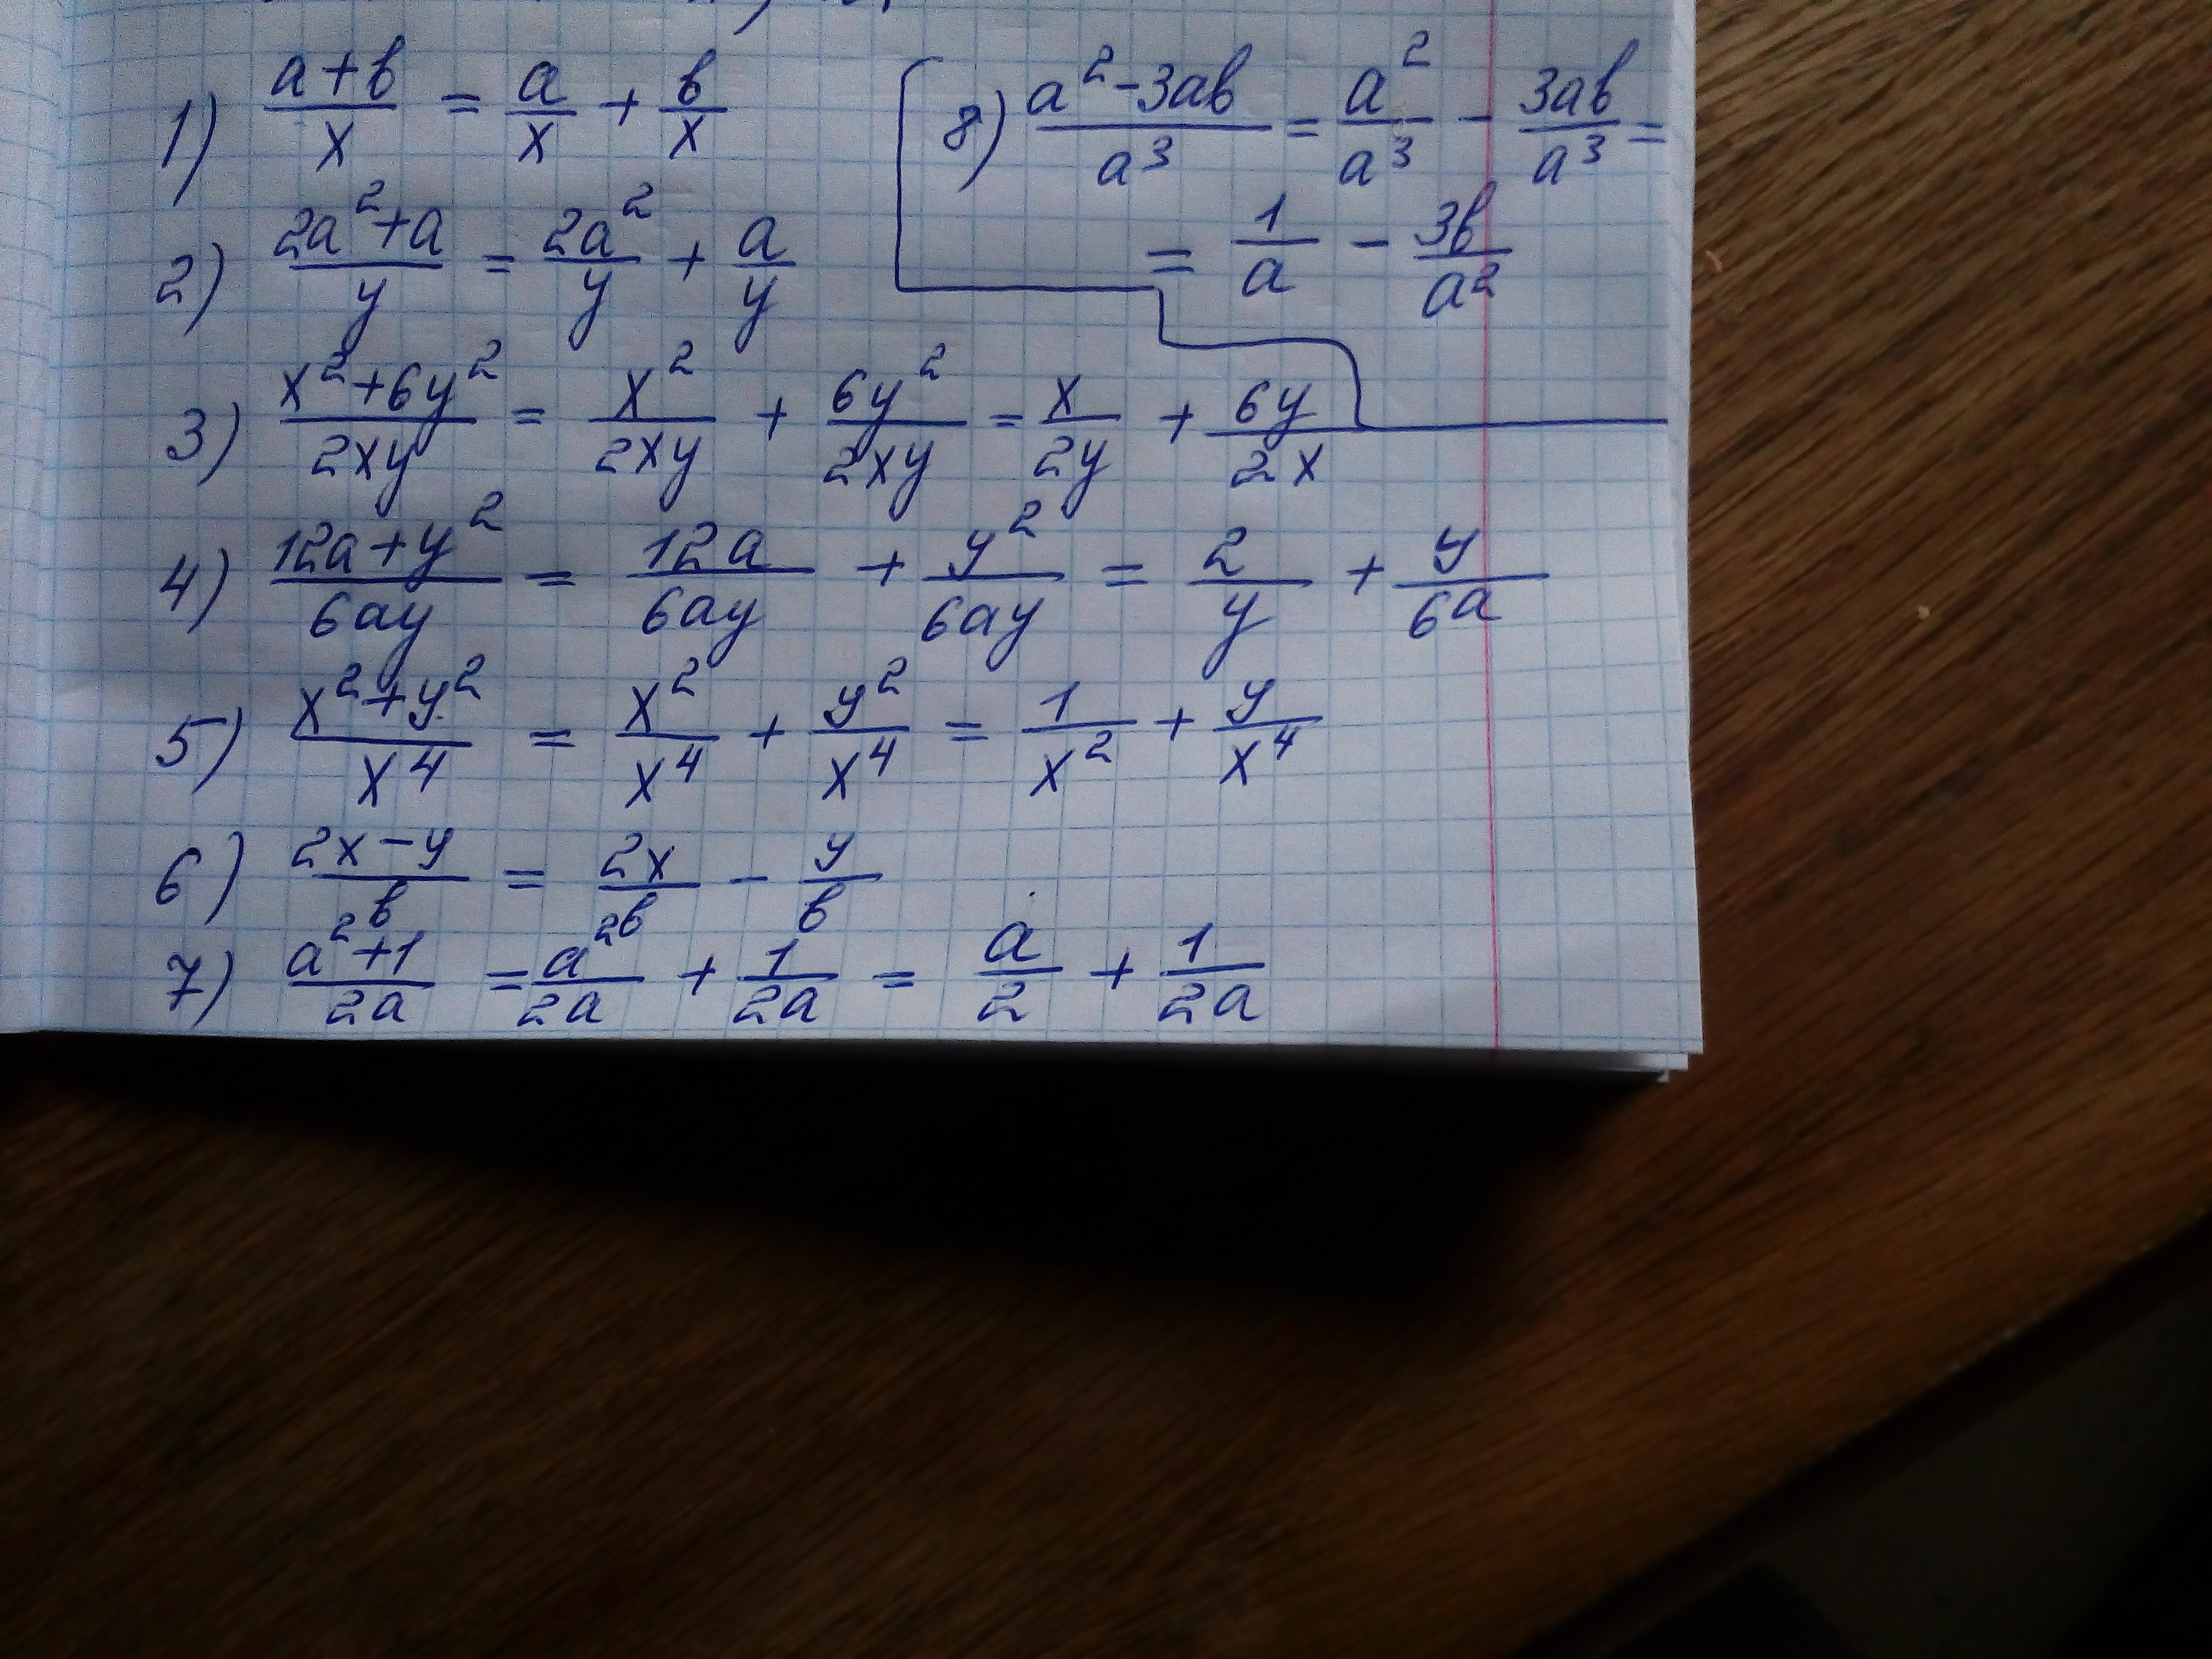 1) \frac{a+b}{x} = \frac{a}{x} + \frac{b}{x}
2) \frac{2a^2+a}{y} = \frac{2a^2}{y} + \frac{a}{y}
3) \frac{x^2+6y^2}{2xy} = \frac{x^2}{2xy} + \frac{6y^2}{2xy} = \frac{x}{2y} + \frac{6y}{2x}
4) \frac{12a+y^2}{6ay} = \frac{12a}{6ay} + \frac{y^2}{6ay} = \frac{2}{y} + \frac{y}{6a}
5) \frac{x^2+y^2}{x^4} = \frac{x^2}{x^4} + \frac{y^2}{x^4} = \frac{1}{x^2} + \frac{y}{x^4}
6) \frac{2x-y}{b} = \frac{2x}{b} - \frac{y}{b}
7) \frac{a^2+1}{2a} = \frac{a^2}{2a} + \frac{1}{2a} = \frac{a}{2} + \frac{1}{2a}
8) \frac{a^2-3ab}{a^3} = \frac{a^2}{a^3} - \frac{3ab}{a^3} =
= \frac{1}{a} - \frac{3b}{a^2}